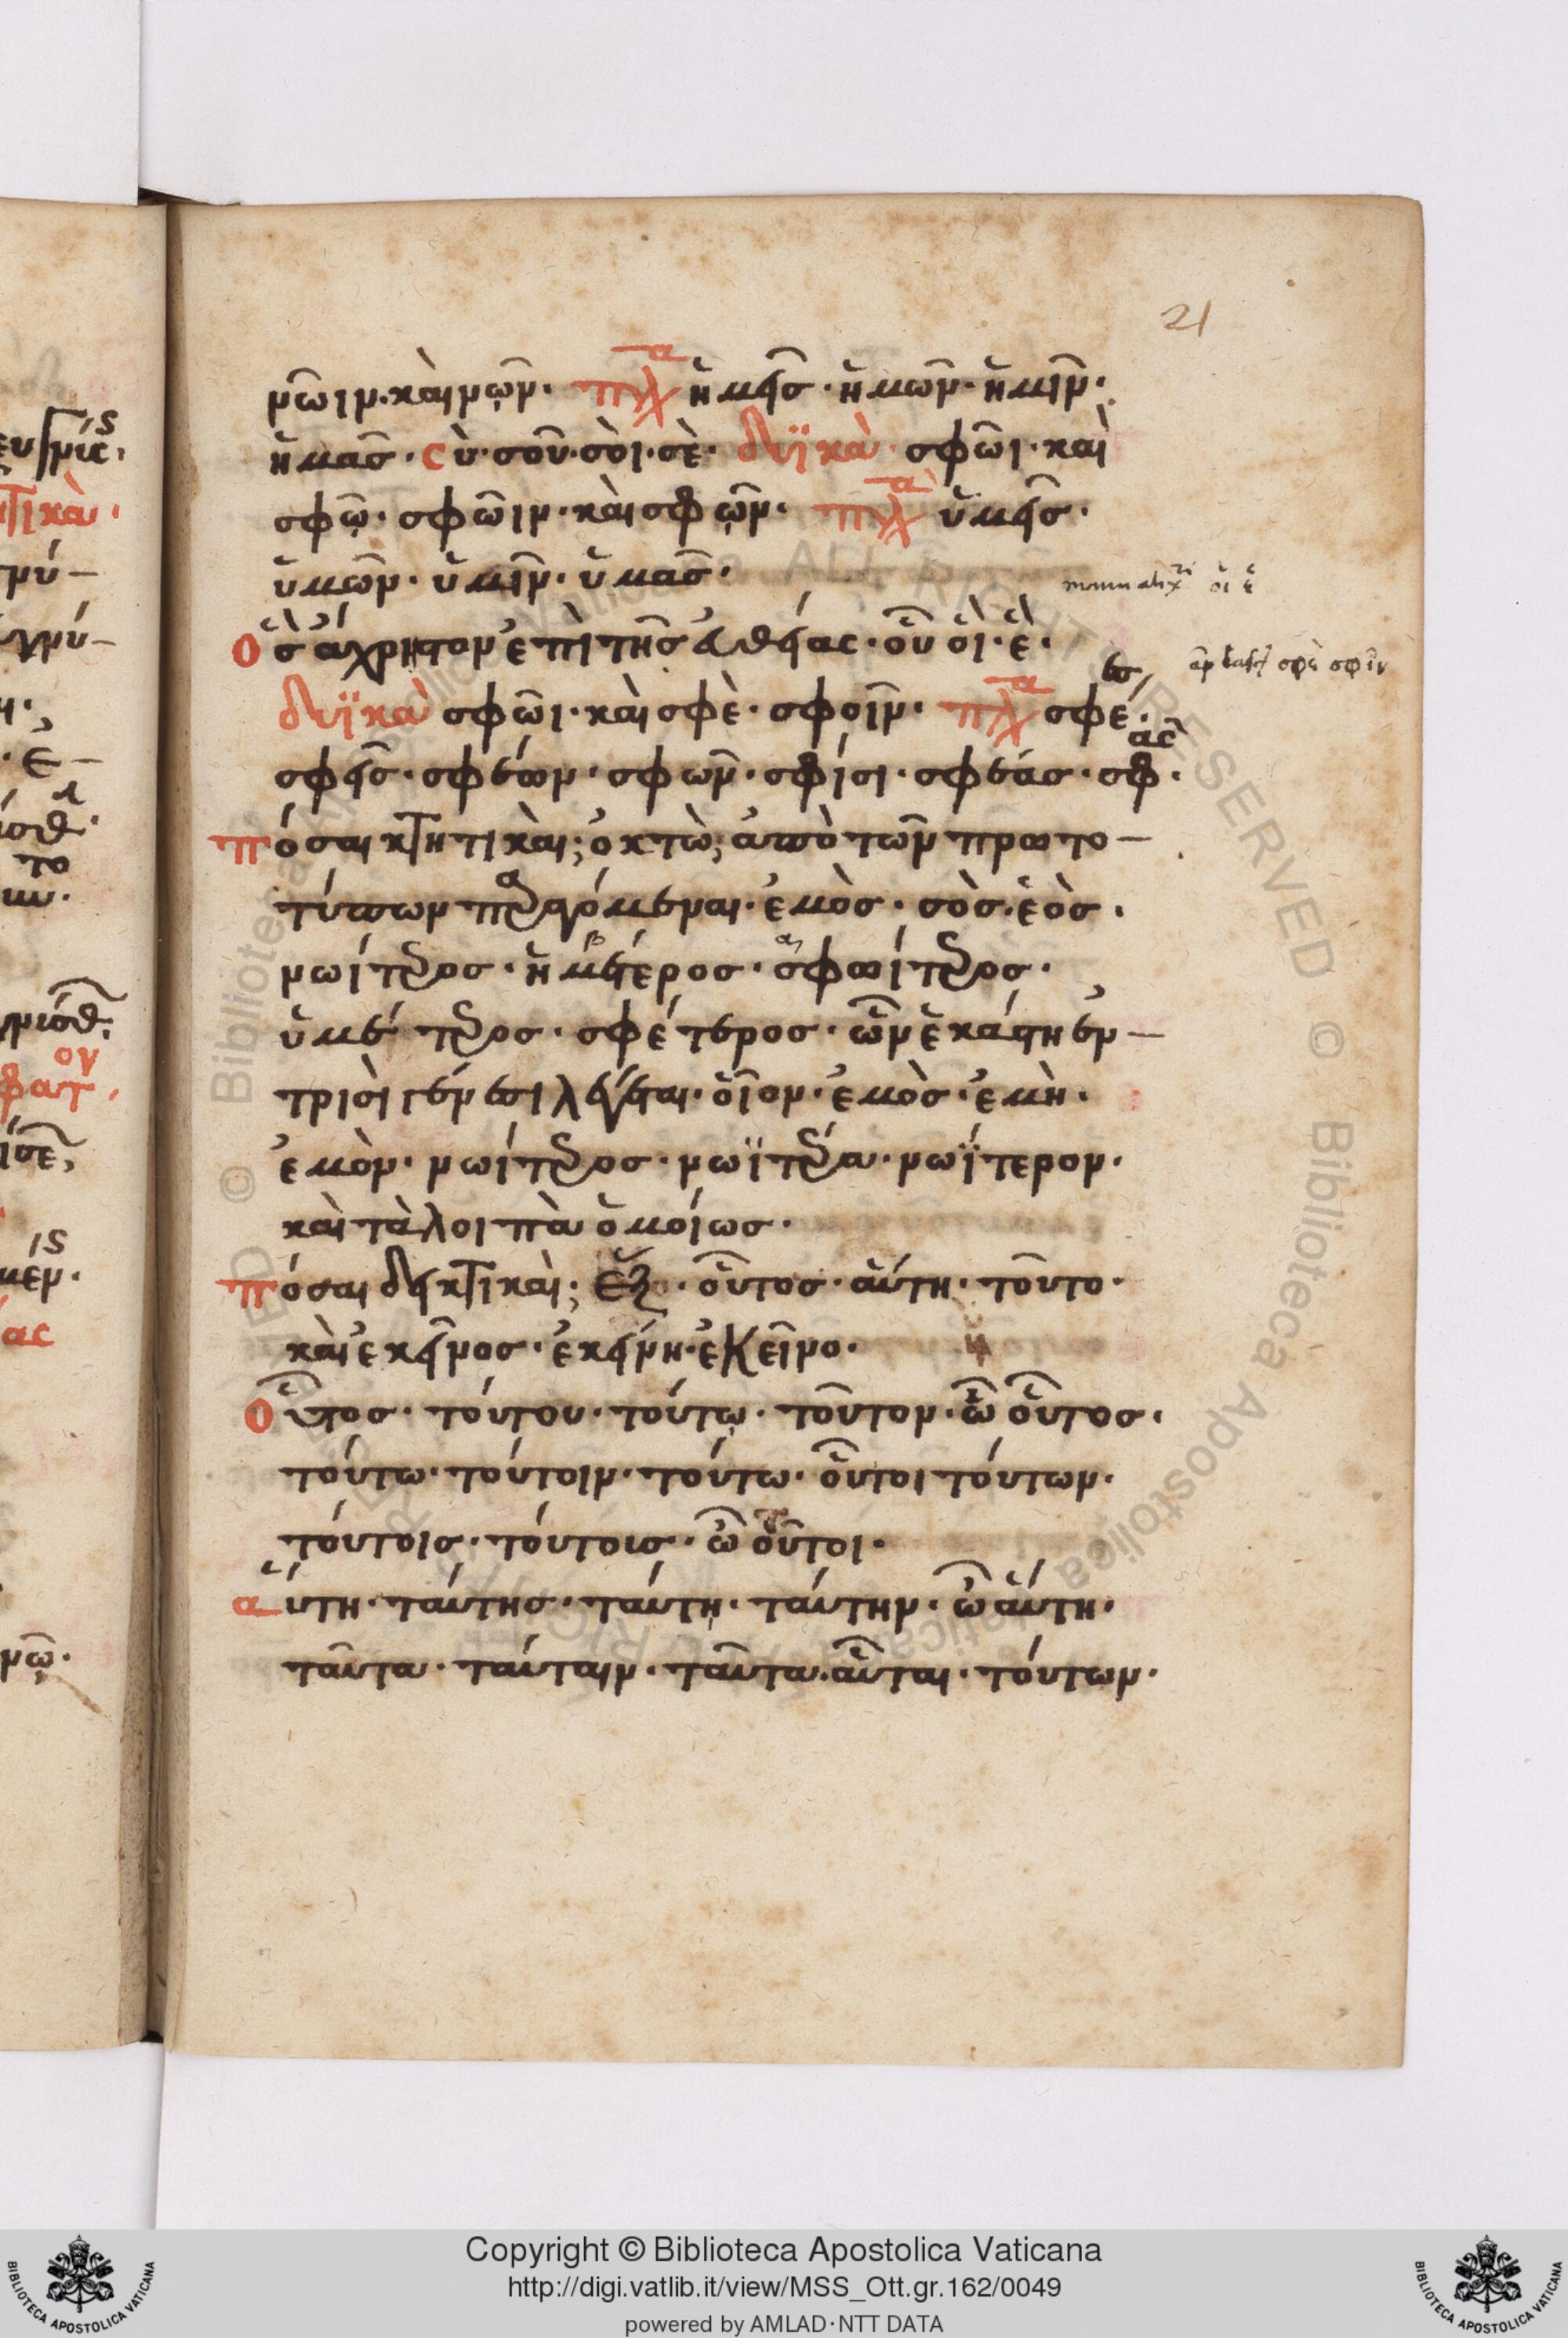 21
νῶιν· καὶ νῷν· πλα ἡμεῖς· ἡμῶν· ἡμῖν·
ἡμᾶς· σὺ· σοῦ· σοὶ· σὲ· δυϊκὰ· σφῶι· καὶ
σφῷ· σφῶιν· καὶ σφῷν· πλα ὑμεῖς·
ὑμῶν· ὑμῖν· ὑμᾶς·
οἱ ἑ
ὃς ἄχρηστον ἐπὶ τῆς εὐθείας· οὗ οἷ· ἕ·
σφὲ σφῖν
δυϊκὰ σφῶι· καὶ σφὲ· σφοῖν· πλα σφέες·
σφεῖς· σφέων· σφῶν· σφίσι· σφέας· σφᾶς·
πόσαι κτητικαὶ; ὀκτὼ; ἀπὸ τῶν πρωτο-
τύπων παραγόμεναι· ἐμὸς· σὸς· ἑὸς·
νωίτερος· ἡμέτερος· σφωίτερος·
ὑμέτερος· σφέτερος· ὧν ἑκάστη ἐν
τρισὶ γένεσι λέγεται· οἷον· ἐμὸς· ἐμὴ·
ἐμὸν· νωίτερος· νωϊτέρα· νωΐτερον·
καὶ τὰ λοιπὰ ὁμοίως·
πόσαι δεικτικαὶ; ἓξ· οὗτος· αὕτη· τοῦτο·
καὶ ἐκεῖνος· ἐκείνη· ἐκεῖνο·
οὗτος· τούτου· τούτῳ· τοῦτον· ὦ οὗτος·
τούτω· τούτοιν· τούτω· οὗτοι τούτων·
τούτοις· τούτοις· ὦ οὗτοι·
αὕτη· ταύτης· ταύτη· ταύτην· ὦ αὕτη·
ταῦτα· ταύταιν· ταῦτα· αὗται· τούτων·
Copyright © Biblioteca Apostolica Vaticana
http://digi.vatlib.it/view/MSS_Ott.gr.162/0049
powered by AMLAD·NTT DATA
BIBLIOTECA APOSTOLICA VATICANA
BIBLIOTECA APOSTOLICA VATICANA